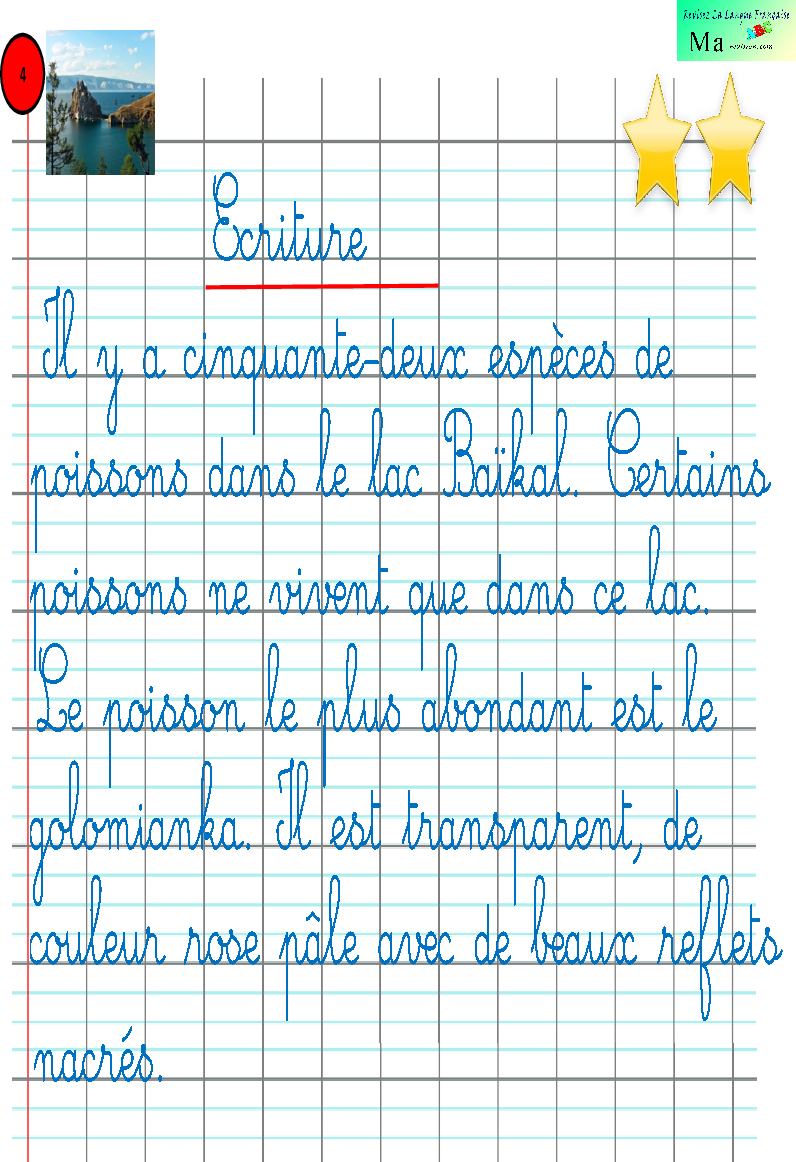 Revisez La Langue Française
4
Ma
Ecriture
Il y a cinquante-deux espèces de
poissons dans le lac Baïkal. Certains
poissons ne vivent que dans ce lac.
Le poisson le plus abondant est le
golomianka. Il est transparent, de
couleur rose pâle avec de beaux reflets
nacrés.